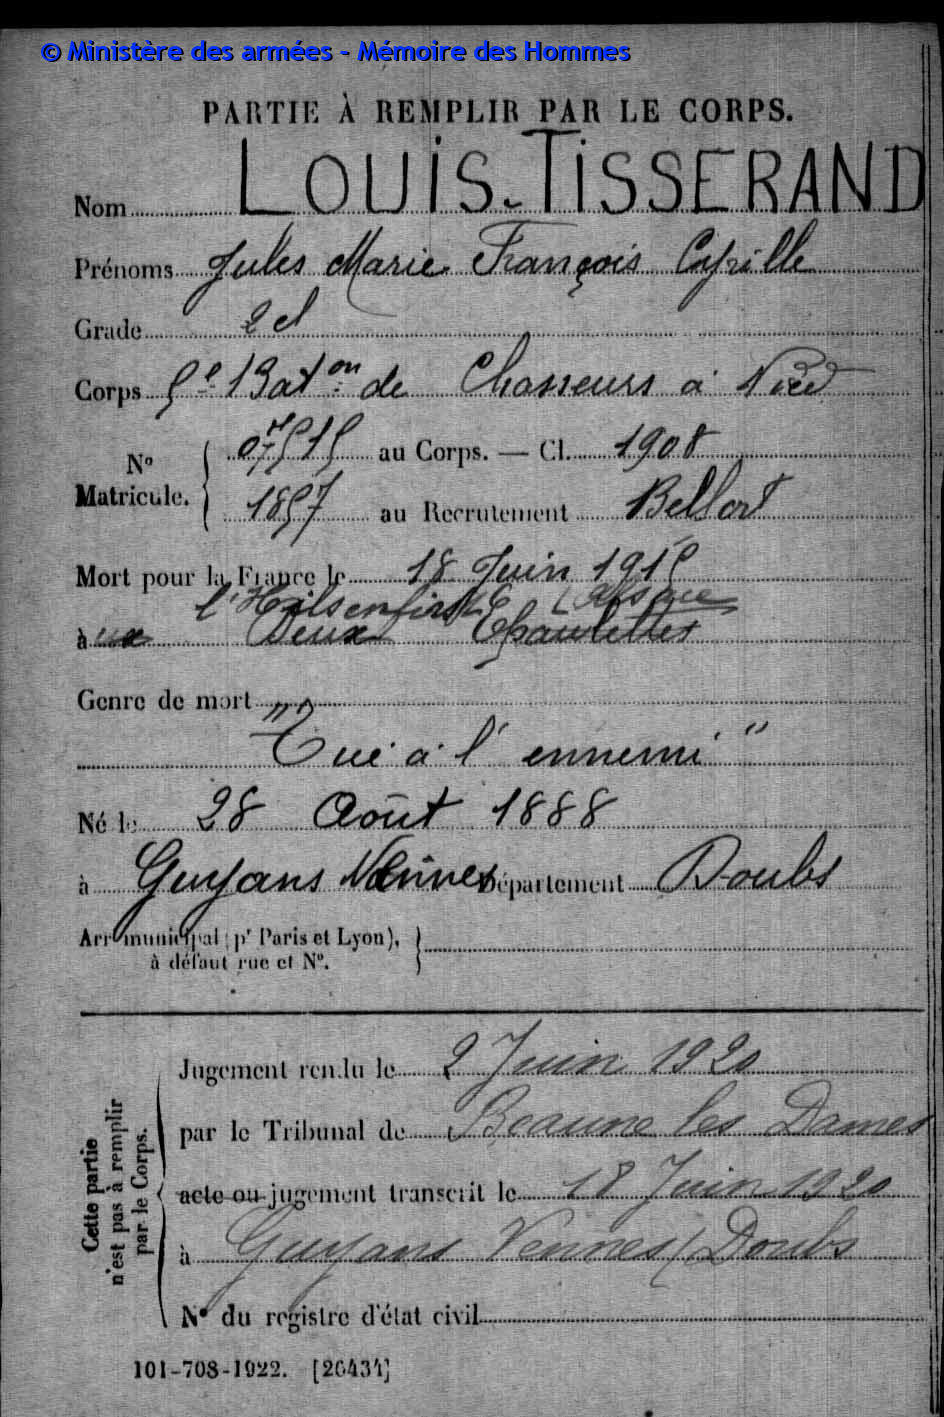 © Ministère des armées - Mémoire des Hommes
PARTIE À REMPLIR PAR LE CORPS.
Nom LOUIS-TISSERAND
Prénoms Jules Marie François Cyrille
Grade 2 cl
Corps 5e Baton de Chasseurs à Pied
No Matricule. { 07515 au Corps. — Cl. 1908
1857 au Recrutement Belfort
Mort pour la France le 18 Juin 1915
l'Hilsenfirst (Alsace
à Deux Epaulettes
Genre de mort
"Tué à l'ennemi"
Né le 28 Août 1888
à Guyans Vennes Département Doubs
Arrt municipal (pr Paris et Lyon), }
à défaut rue et No.
Cette partie
n'est pas à remplir
par le Corps.
Jugement rendu le 2 Juin 1920
par le Tribunal de Beaune les Dames
acte ou jugement transcrit le 18 Juin 1920
à Guyans Vennes (Doubs
No du registre d'état civil
101-708-1922. [26434]